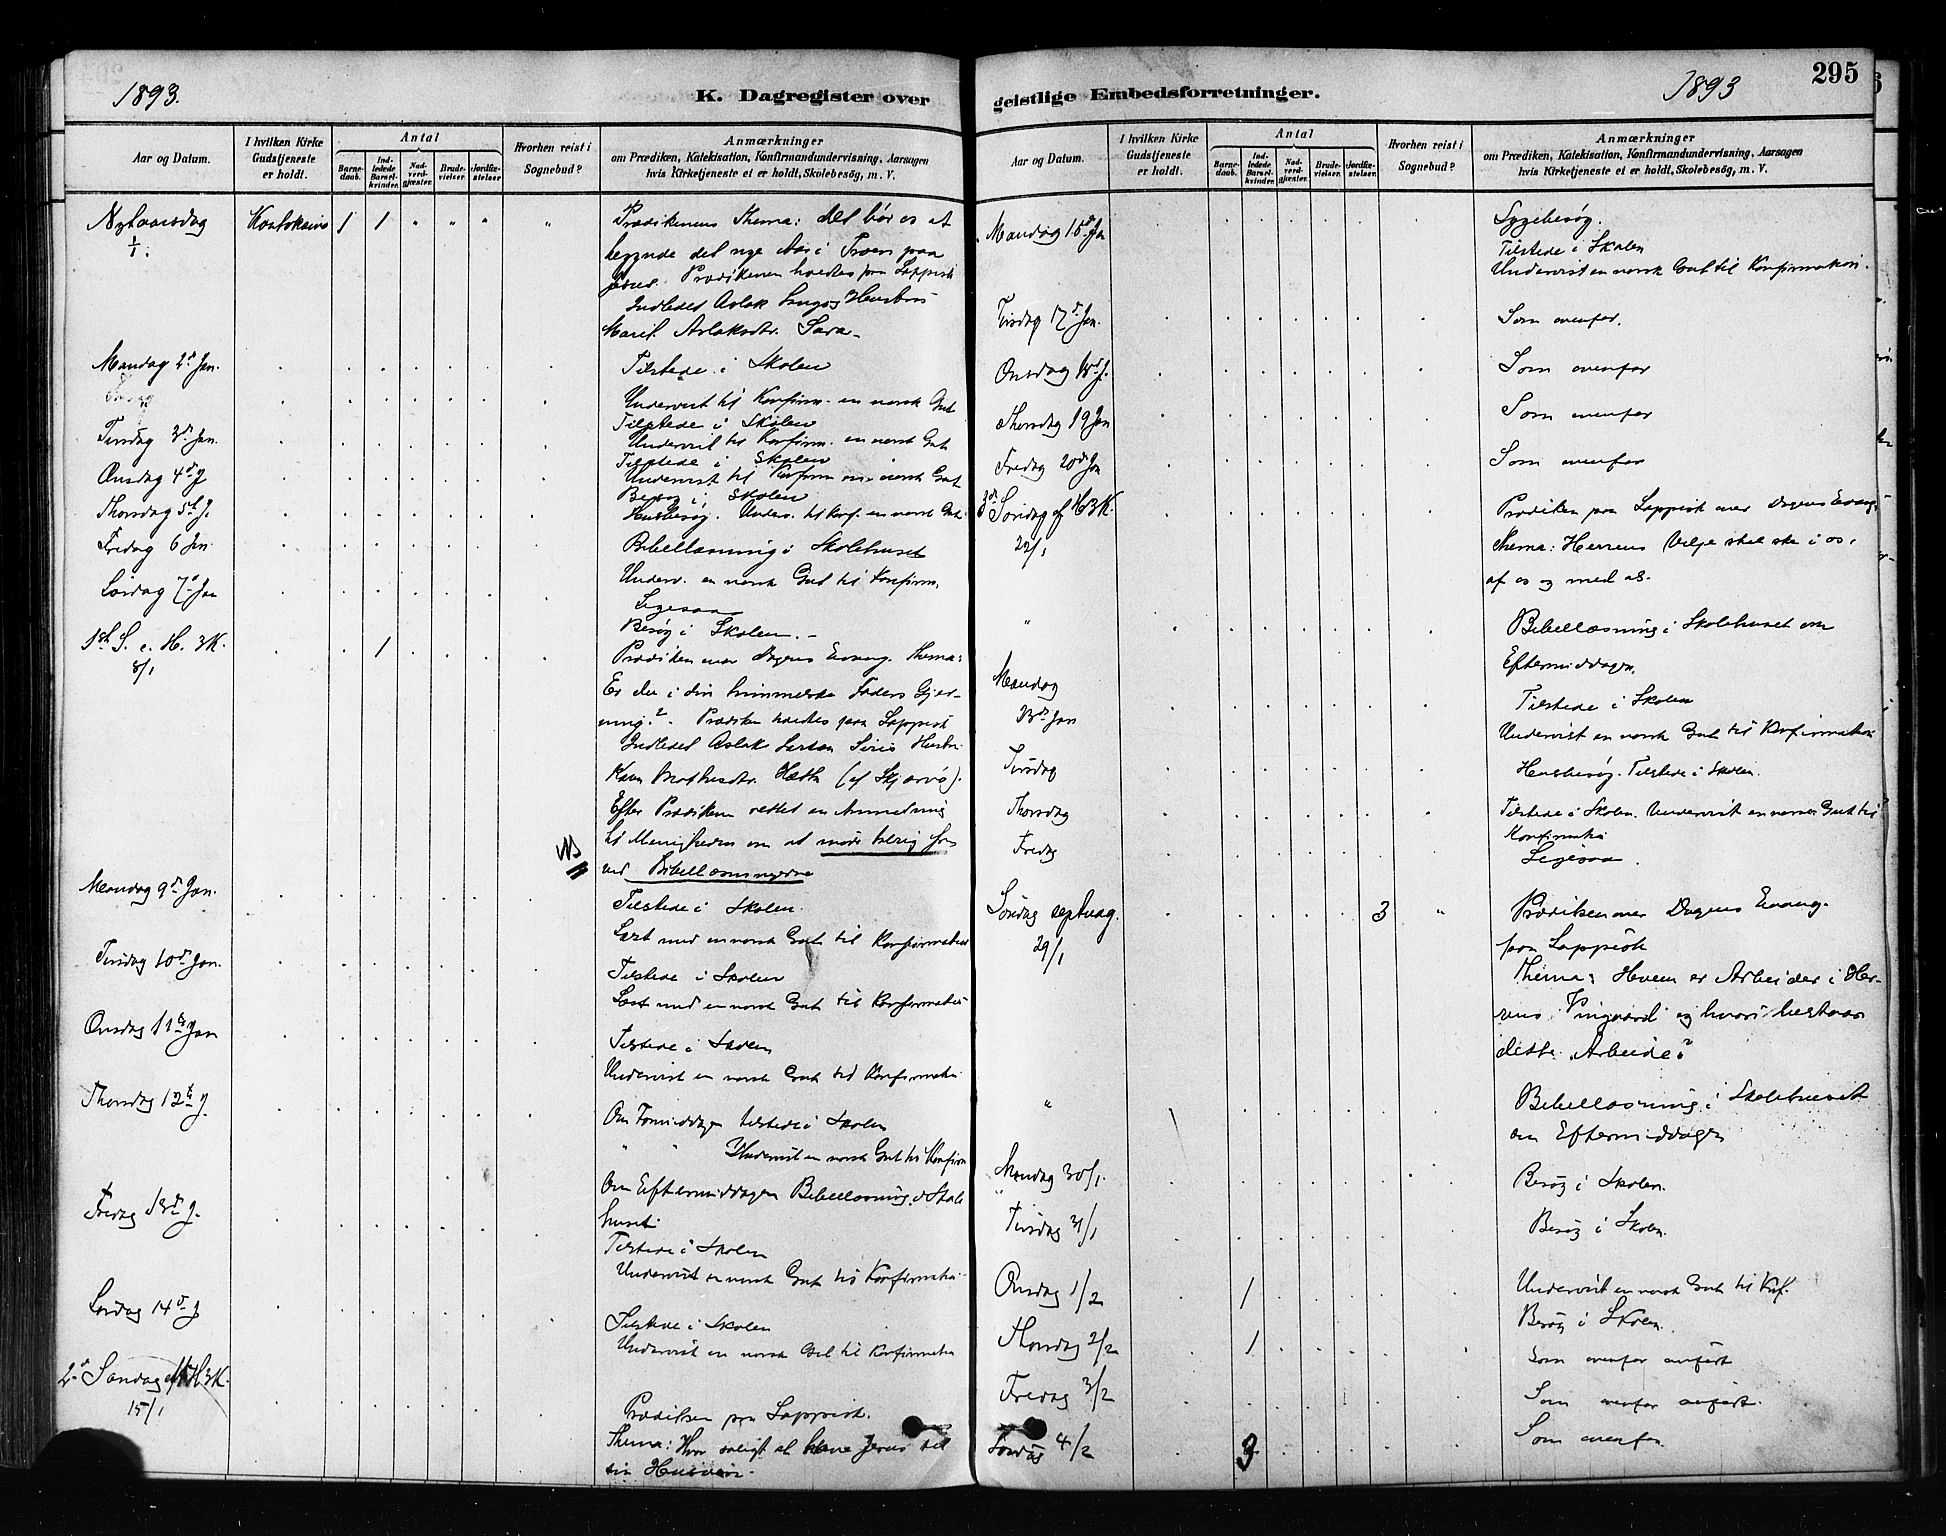 1893.
K. Dagregister over
Aar og Datum.
I hvilken Kirke Gudstjeneste er holdt.
Antal
Barne-daab.
Ind-ledede Barsel-kvinder.
Nad-verd-gjæster.
Brude-vielser.
Jordfæ-stelser
Hvorhen reist i Sognebud?
Anmærkninger
om Prædiken, Katekisation, Konfirmandundervisning, Aarsagen
hvis Kirketjeneste ei er holdt, Skolebesøg, m. V.
Nytaarsdag Kautokeino 1 1 " " " " Prædikenens Thema: det bør os at
1/1. begynde det nye Aar i Troen paa
Jesus. Prædikenen holdtes paa Lappisk
Indledet Aslak Hustru
Marit Aslaksdtr. Sara
Mandag 2d Jan. Tilstede i Skolen
Undervist til Konfirm. en norsk Gut
Tilstede i Skolen
Tirsdag 3d Jan. Undervist til Konfirm. en norsk Gut
Tilstede i Skolen
Onsdag 4d J Undervist til Konfirm en norsk Gut
Besøg i Skolen
Thorsdag 5t J. Husbesøg. Underv. til Konf. en norsk Gut
Fredag 6 Jan. Bibellæsning i Skolehuset
Underv. en norsk Gut til Konfirm.
Lørdag 7d Jan Ligesaa
Besøg i Skolen. –
1st S. e. H. 3K. 1 Prædiken over Dagens Evang. Thema:
8/1 Er du i din himmelske Faders Gjer-
ning? Prædiken holdtes paa Lappisk
Indledet Aslak Larsen Siris Hustru
Karen Mathisdtr. Hætta (af Skjervø).
Efter Prædiken rettet en Anmodning
til Menigheden om at møde talrig frem
NB ved Bibellæsningerne
Mandag 9d Jan. Tilstede i Skolen.
Læst med en norsk Gut til Konfirmation
Tirsdag 10d Jan. Tilstede i Skolen
Læst med en norsk Gut til Konfirmation
Onsdag 11te Jan Tilstede i Skolen
Undervist en norsk Gut til Konfirmation
Thorsdag 12te J Om Formiddagen tilstede i Skolen
" " Undervist en norsk Gut til Konfirm
Om Eftermiddagen Bibellæsning i Skole
huset.
Fredag 13d J. Tilstede i Skolen
Undervist en norsk Gut til Konfirmation
Lørdag 14d J Tilstede i Skolen
Undervist en norsk Gut til Konfirmation
2d Søndag H3K.
15/1 Prædiken paa Lappisk.
Thema: Hvor saligt at have Jesus til
sin
295
1893
geistlige Embedsforretninger.
Aar og Datum.
I hvilken Kirke Gudstjeneste er holdt.
Antal
Barne-daab.
Ind-ledede Barsel-kvinder.
Nad-verd-gjæster.
Brude-vielser.
Jordfæ-stelser
Hvorhen reist i Sognebud?
Anmærkninger
om Prædiken, Katekisation, Konfirmandundervisning, Aarsagen
hvis Kirketjeneste ei er holdt, Skolebesøg, m. V.
Mandag 16d Jan Sygebesøg.
Tilstede i Skolen
Undervist en norsk Gut til Konfirmation.
Tirsdag 17d Jan. Som ovenfor.
Onsdag 18d J. Som ovenfor
Thorsdag 19 Jan Som ovenfor
Fredag 20d Jan Som ovenfor
3d Søndag ef H3K. Prædiken paa Lappisk over Dagens Evang.
22/1 Thema: Herrens Vilje skal ske i os,
af os og med os.
" Bibellæsning i Skolehuset om
Eftermiddagen.
Mandag Tilstede i Skolen
23d Jan Undervist en norsk Gut til Konfirmation
Tirsdag Husbesøg. Tilstede i Skolen.
Thorsdag Tilstede i Skolen. Undervist en norsk Gut til
Konfirmation
Fredag Ligesaa.
Søndag septuag. 3 " Prædiken over Dagens Evang.
29/1 paa Lappisk
Thema: Hvem er Arbeider i Her-
rens Vingaard og hvori bestaar
dette Arbeide?
" Bibellæsning i Skolehuset
om Eftermiddagen
Mandag 30/1. Besøg i Skolen.
Tirsdag 31/1 Besøg i Skolen.
Onsdag 1/2 1 Undervist en norsk Gut til Konf.
Besøg i Skolen.
Thorsdag 2/2 1 Som ovenfor anført
Fredag 3/2 Som ovenfor anført.
Lørdag 4/2 3 Som ovenfor